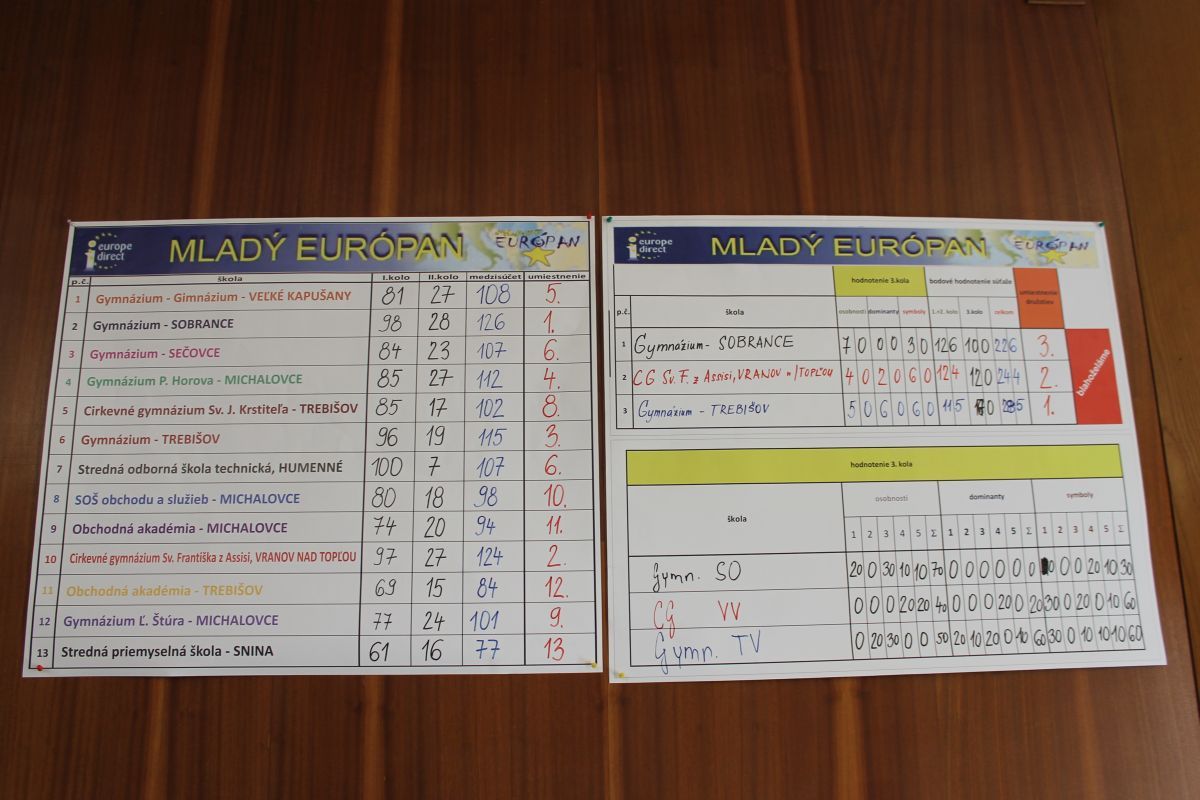 europe
direct
MLADÝ EURÓPAN
EURÓPAN
p.č. škola I.kolo II.kolo medzisúčet umiestnenie
1 Gymnázium - Gimnázium - VEĽKÉ KAPUŠANY 81 27 108 5.
2 Gymnázium - SOBRANCE 98 28 126 1.
3 Gymnázium - SEČOVCE 84 23 107 6.
4 Gymnázium P. Horova - MICHALOVCE 85 27 112 4.
5 Cirkevné gymnázium Sv. J. Krstiteľa - TREBIŠOV 85 17 102 8.
6 Gymnázium - TREBIŠOV 96 19 115 3.
7 Stredná odborná škola technická, HUMENNÉ 100 7 107 6.
8 SOŠ obchodu a služieb - MICHALOVCE 80 18 98 10.
9 Obchodná akadémia - MICHALOVCE 74 20 94 11.
10 Cirkevné gymnázium Sv. Františka z Assisi, VRANOV NAD TOPĽOU 97 27 124 2.
11 Obchodná akadémia - TREBIŠOV 69 15 84 12.
12 Gymnázium Ľ. Štúra - MICHALOVCE 77 24 101 9.
13 Stredná priemyselná škola - SNINA 61 16 77 13
europe
direct
MLADÝ EURÓPAN
EURÓPAN
hodnotenie 3.kola bodové hodnotenie súťaže umiestnenie družstiev
p.č. škola osobnosti dominanty symboly 1.+2. kolo 3.kolo celkom
1 Gymnázium - SOBRANCE 70 0 30 126 100 226 3.
2 CG Sv. F. z Assisi, VRANOV n/TOPĽOU 40 20 60 124 120 244 2.
3 Gymnázium - TREBIŠOV 50 60 60 115 1.
blahoželáme
hodnotenie 3. kola
škola osobnosti dominanty symboly
1 2 3 4 5 Σ 1 2 3 4 5 Σ 1 2 3 4 5 Σ
Gymn. SO 20 0 30 10 10 70 0 0 0 0 0 0 0 0 20 10 30
CG VV 0 0 0 20 20 40 0 0 0 20 0 20 30 0 20 0 10 60
Gymn. TV 0 20 30 0 0 50 20 10 20 0 10 60 30 0 10 10 10 60